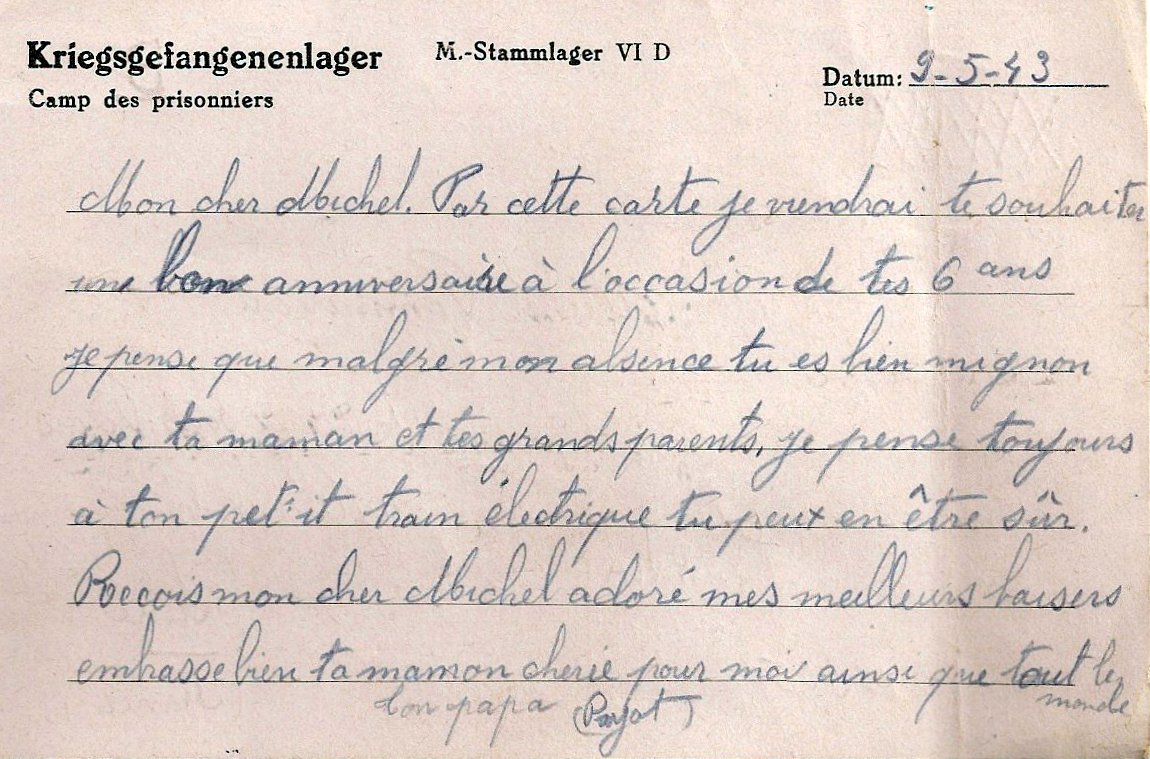 Kriegsgefangenenlager M.-Stammlager VI D Datum: 9-5-43
Camp des prisonniers Date
Mon cher Michel. Par cette carte je viendrai te souhaiter
un bon anniversaire à l'occasion de tes 6 ans
je pense que malgré mon absence tu es bien mignon
avec ta maman et tes grands parents, je pense toujours
à ton pet'it train électrique tu peux en être sûr.
Recois mon cher Michel adoré mes meilleurs baisers
embrasse bien ta maman cherie pour moi ainsi que tout le
monde
ton papa